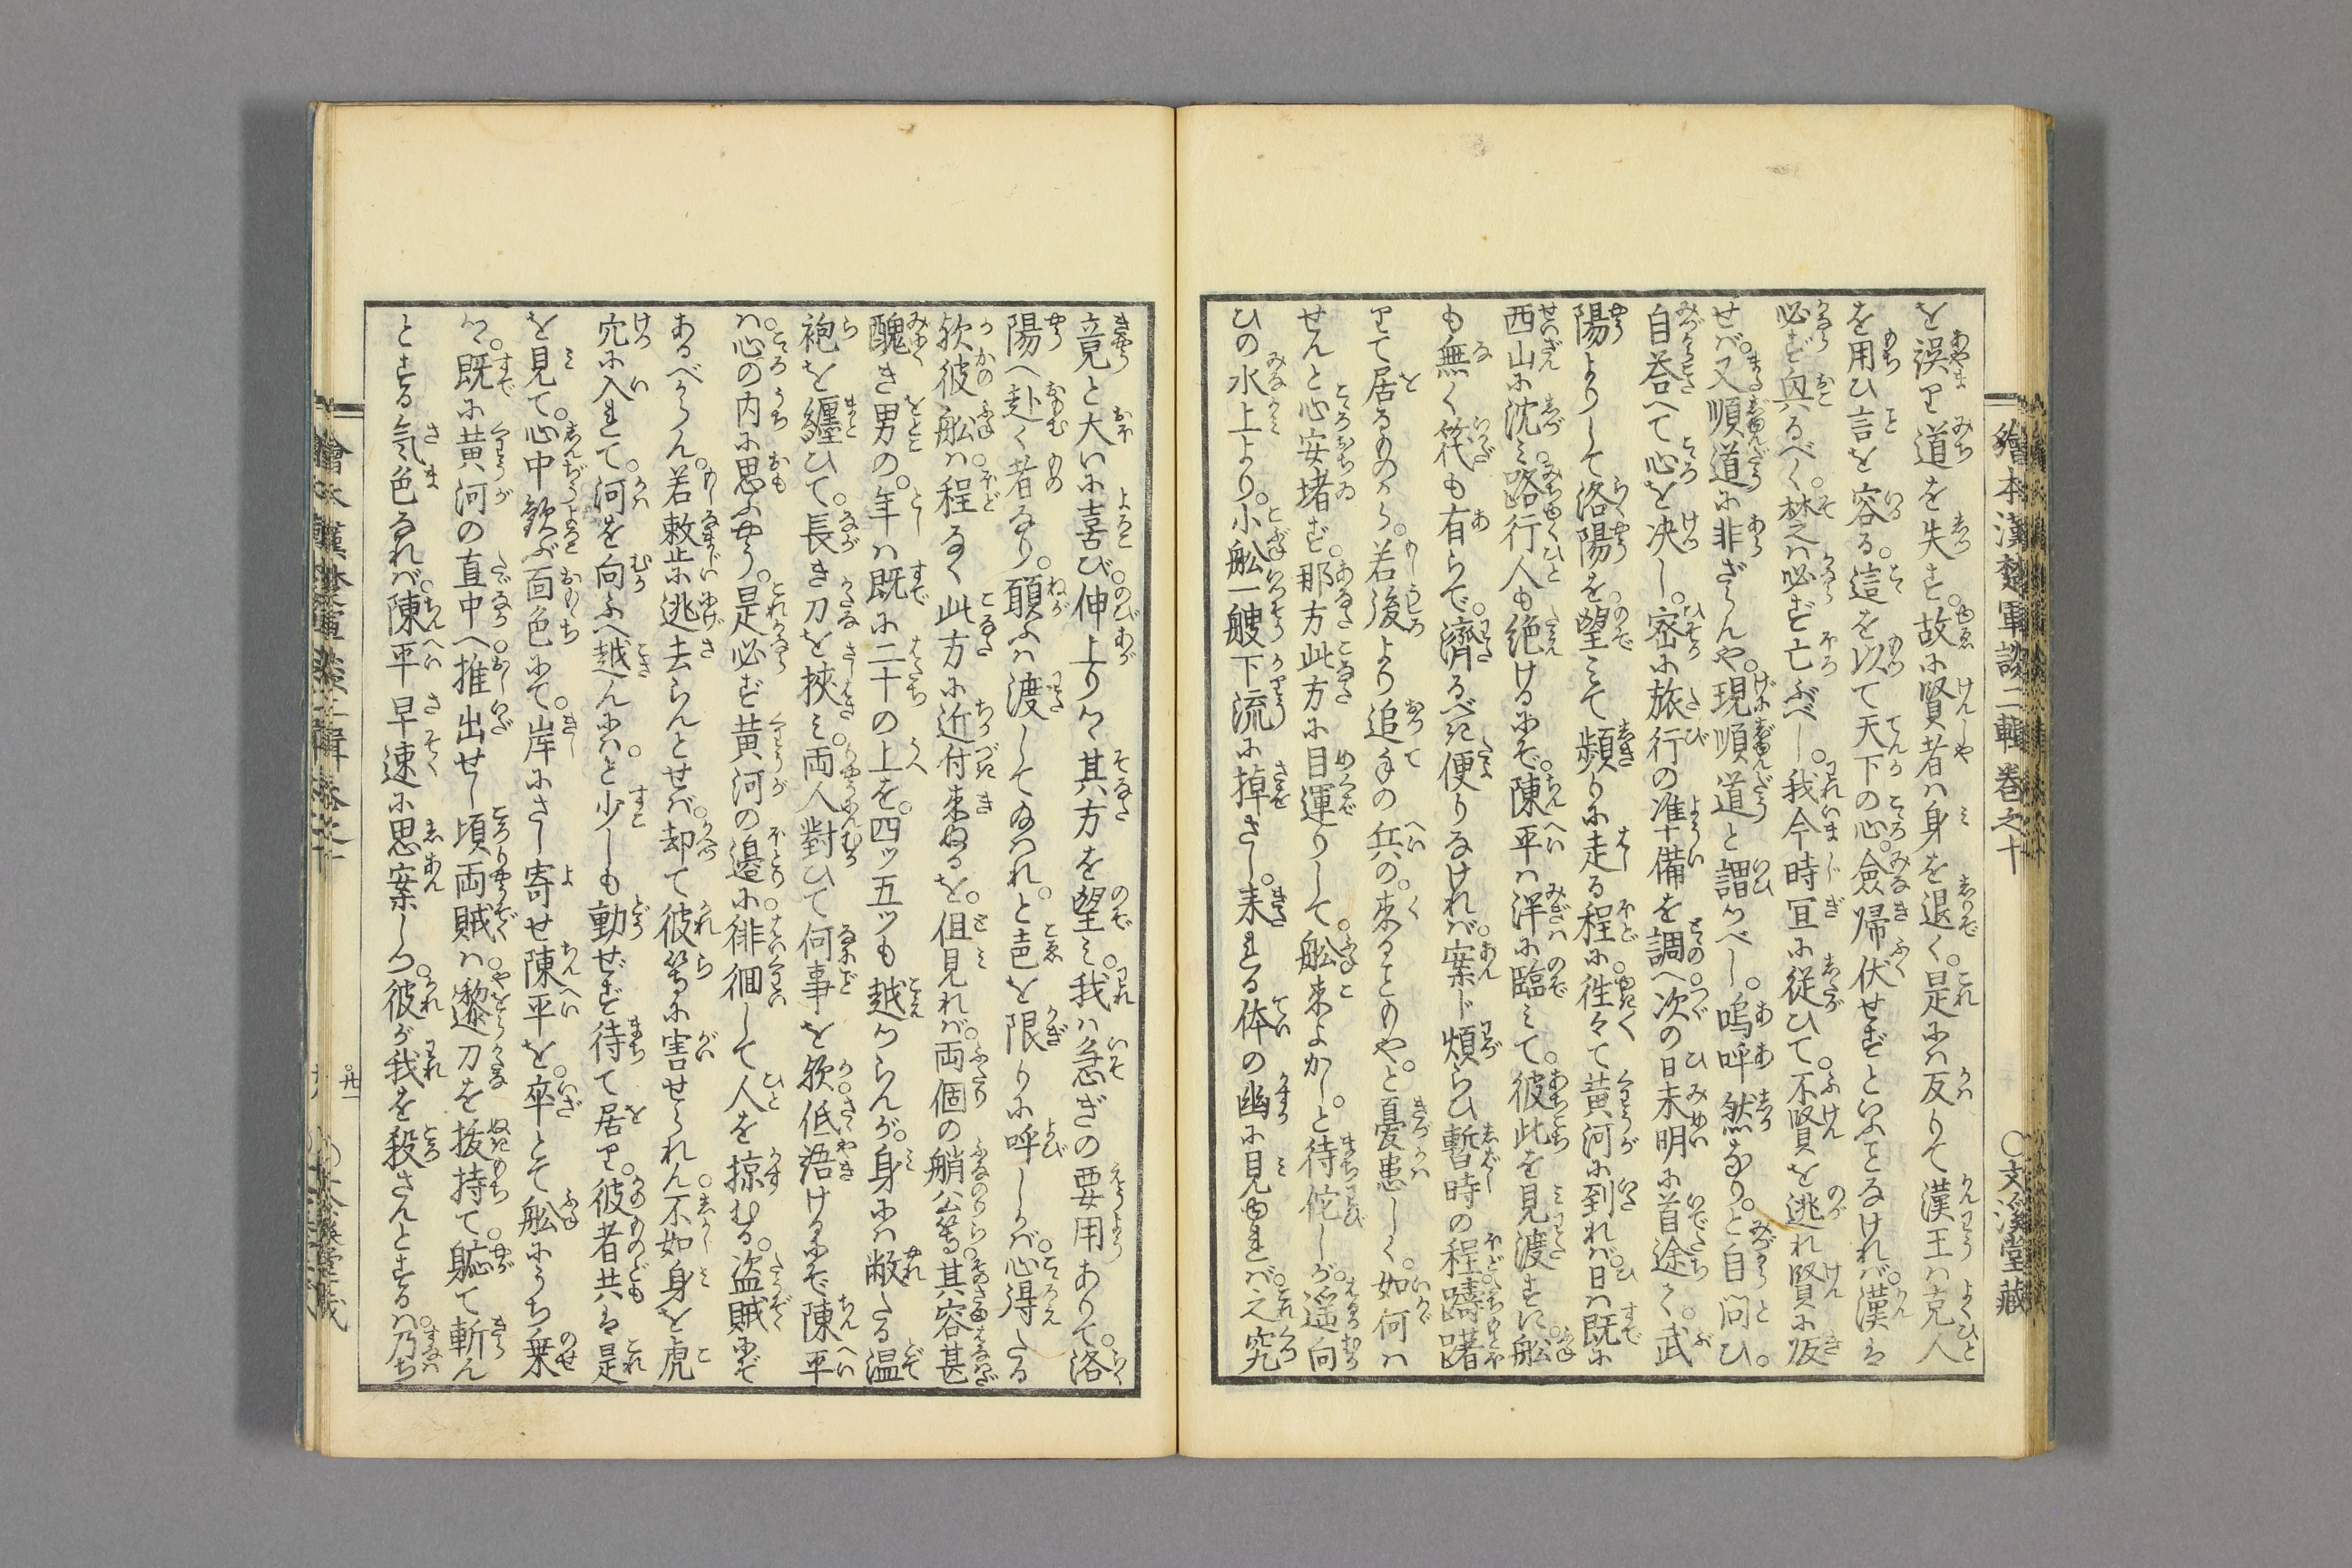 繪本漢楚軍談二輯卷之十
〇文溪堂藏
を誤り道を失す。故に賢者ハ身を退く。是にハ反りて漢王ハ克人
を用ひ言を容る。這を以て天下の心。僉歸伏せずといふことなけれバ。漢は
必ず興るべく。楚ハ必ず亡ぶべし。我今時宜に從ひて。不賢を逃れ賢に皈
せバ。又順道に非ざらんや。現順道と謂つべし。嗚呼然なり。と自問ひ。
自荅へて心を决し。密に旅行の准備を調へ。次の日未明に首途く。武
陽よりして洛陽を。望ミて頻りに走る程に。徃々て黄河に到れバ。日ハ既に
西山に沈ミ。路行人も絶けるにぞ。陳平ハ渚に臨ミて。彼此を見渡すに。舩
も無く筏も有らで。濟るべき便りなけれバ。案じ煩らひ暫時の程。躊躇
りて居るものから。若後より追手の兵の。來ることもや。と憂患しく。如何ハ
せんと心安堵ず。那方此方に目運りして。舩來よかし。と待侘しが。遥向
ひの水上より。小舩一艘下流に掉さし。来れる体の幽に見ゆれバ。之究
竟と大いに喜び。伸上りつゝ其方を望ミ。我ハ急ぎの要用ありて。洛
陽へ赴く者なり。願ふハ渡してたまはれ。と声を限りに呼しかバ。心得たる
歟彼舩ハ。程なく此方に近付來ぬるを。但見れバ。両個の艄公等。其容甚
醜き男の。年ハ既に二十の上を。四ツ五ツも越つらんが。身にハ敝たる温
袍を纏ひて。長き刀を挾ミ。両人對ひて何事を歟。低語けるにぞ陳平
ハ。心の内に思ふやう。是必ず黄河の邉に。徘徊して人を掠むる。盗賊にぞ
あるべからん。若敕に逃去らんとせバ。却て彼等に害せられん。不如身を虎
穴に入れて。河を向ふへ越んにハ。と少しも動ぜず待て居り。彼者共は是
を見て。心中歓ぶ面色にて。岸にさし寄せ陳平を。卒とて舩にうち乗
つ。既に黄河の直中へ。推出せし頃両賊ハ。遽刀を抜持て。軈て斬ん
とする氣色なれバ。陳平早速に思案しつ。彼が我を殺さんとするハ。乃ち